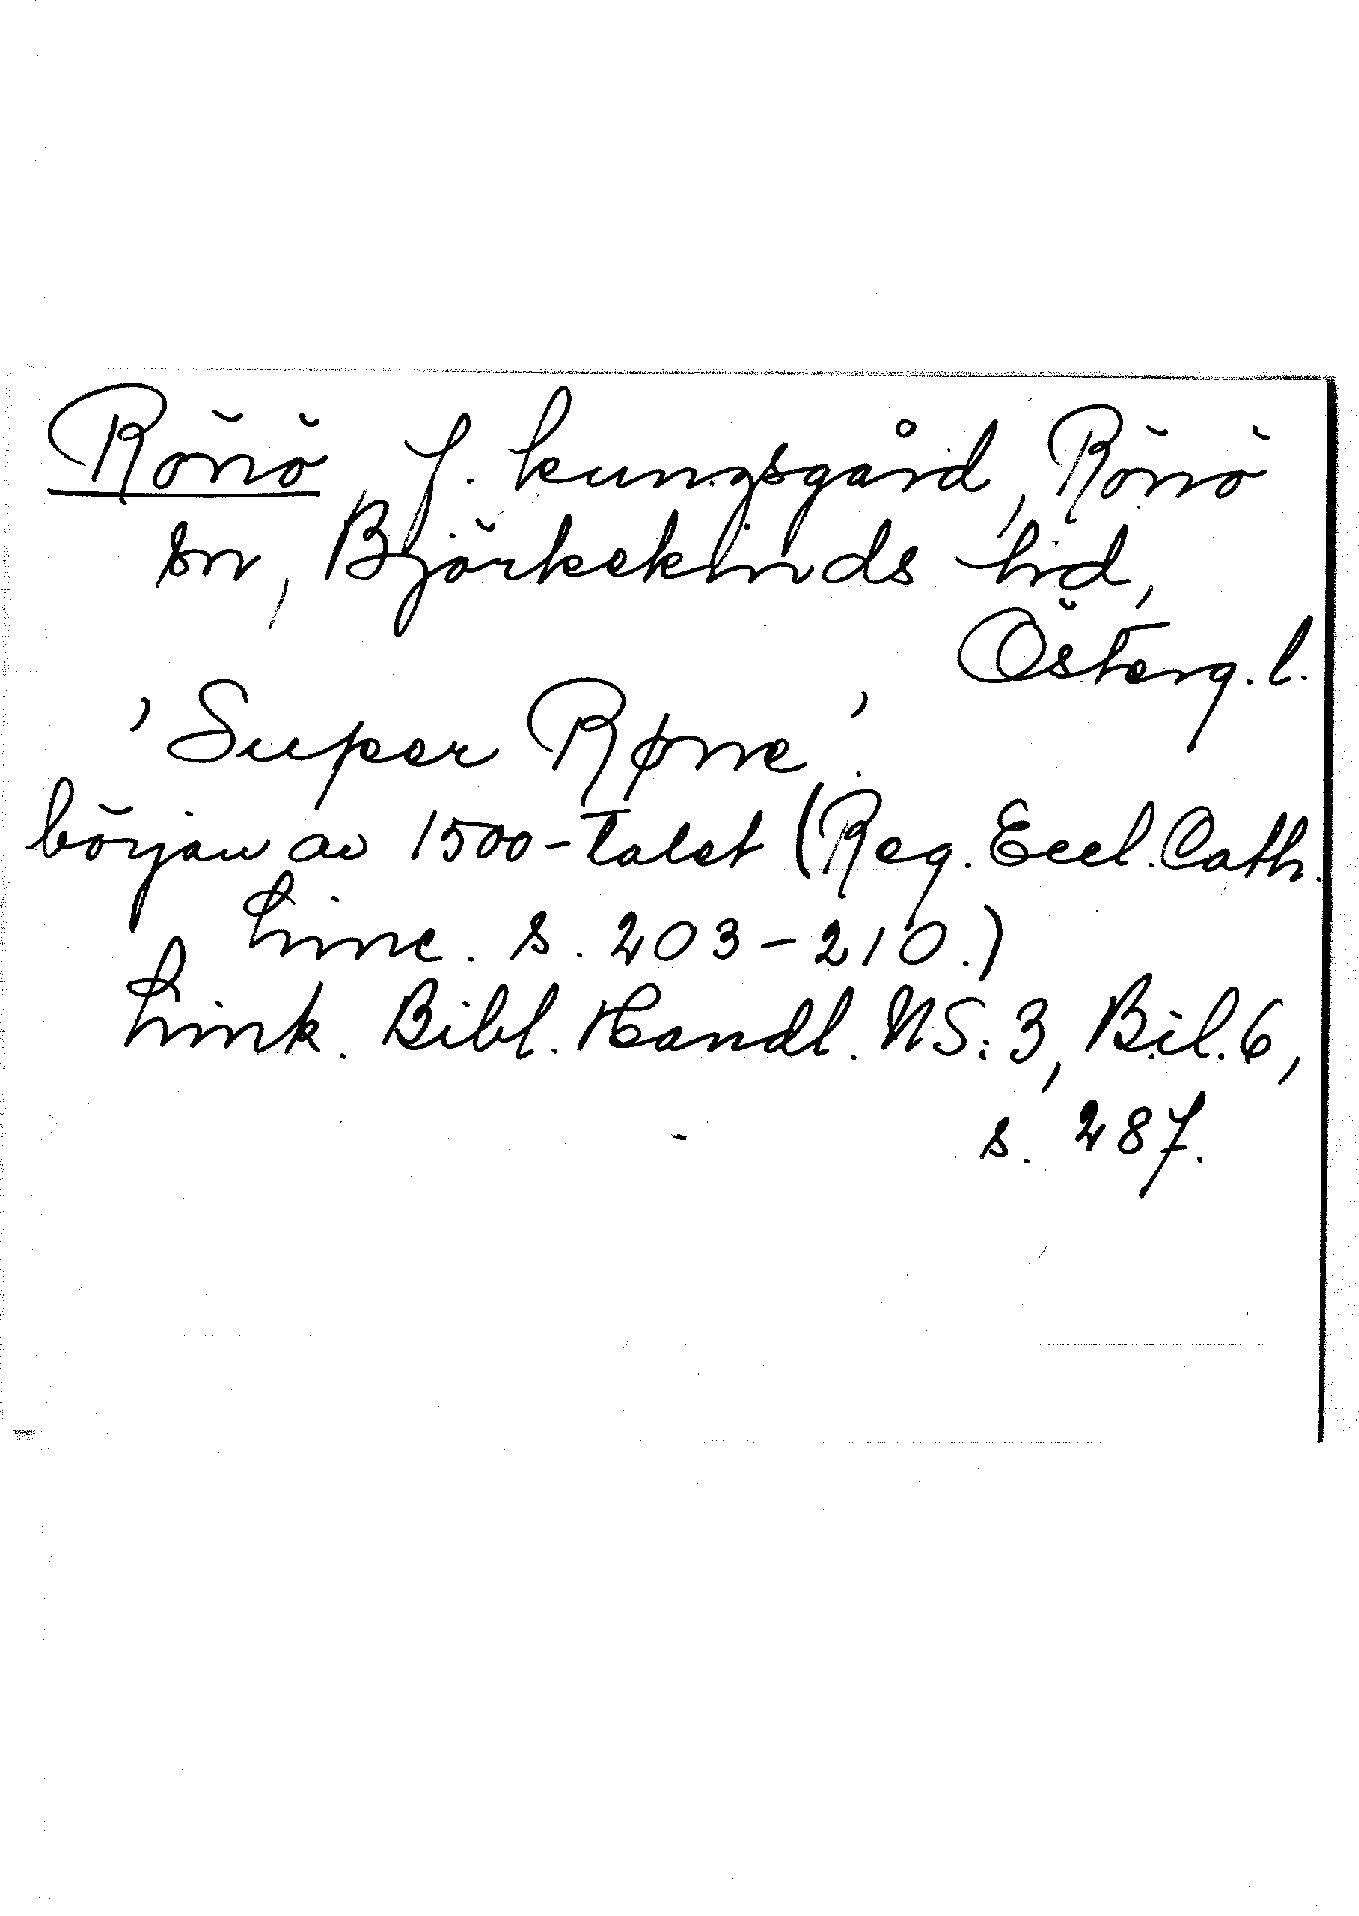 Rönö, f. kungsgård, Rönö
sn, Björkekinds hd,
Österg. l.
'Super Røne'.
början av 1500-talet (Reg. Eccl. Cath.
Linc. s. 203-210.)
Link. Bibl. Handl. NS: 3, Bil. 6,
s. 287.